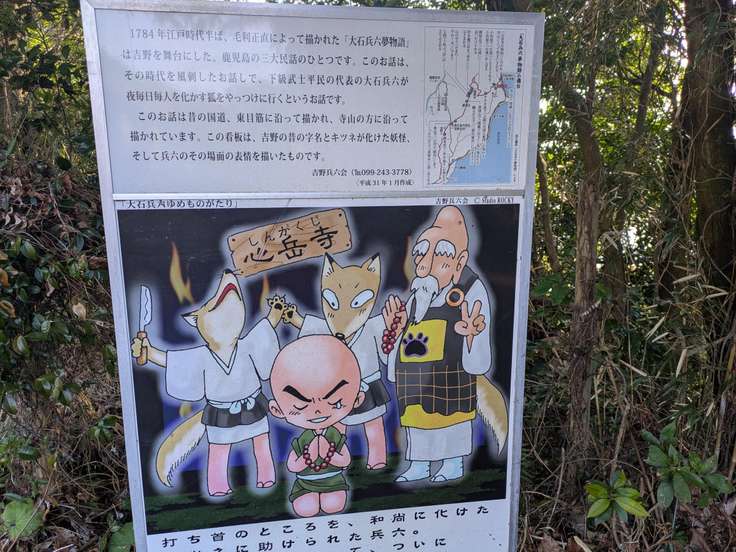 1784年江戸時代半ば、毛利正直によって描かれた「大石兵六夢物語」
は吉野を舞台にした、鹿児島の三大民話のひとつです。このお話は、
その時代を風刺したお話しで、下級武士平民の代表の大石兵六が
夜毎日毎人を化かす狐をやっつけに行くというお話です。
このお話は昔の国道、東目筋に沿って描かれ、寺山の方に沿って
描かれています。この看板は、吉野の昔の字名とキツネが化けた妖怪、
そして兵六のその場面の表情を描いたものです。
吉野兵六会(℡099-243-3778)
(平成31年1月作成)
「大石兵六ゆめものがたり」
吉野兵六会 © Studio ROCKY
しんがくじ
心岳寺
打ち首のところを、和尚に化けた